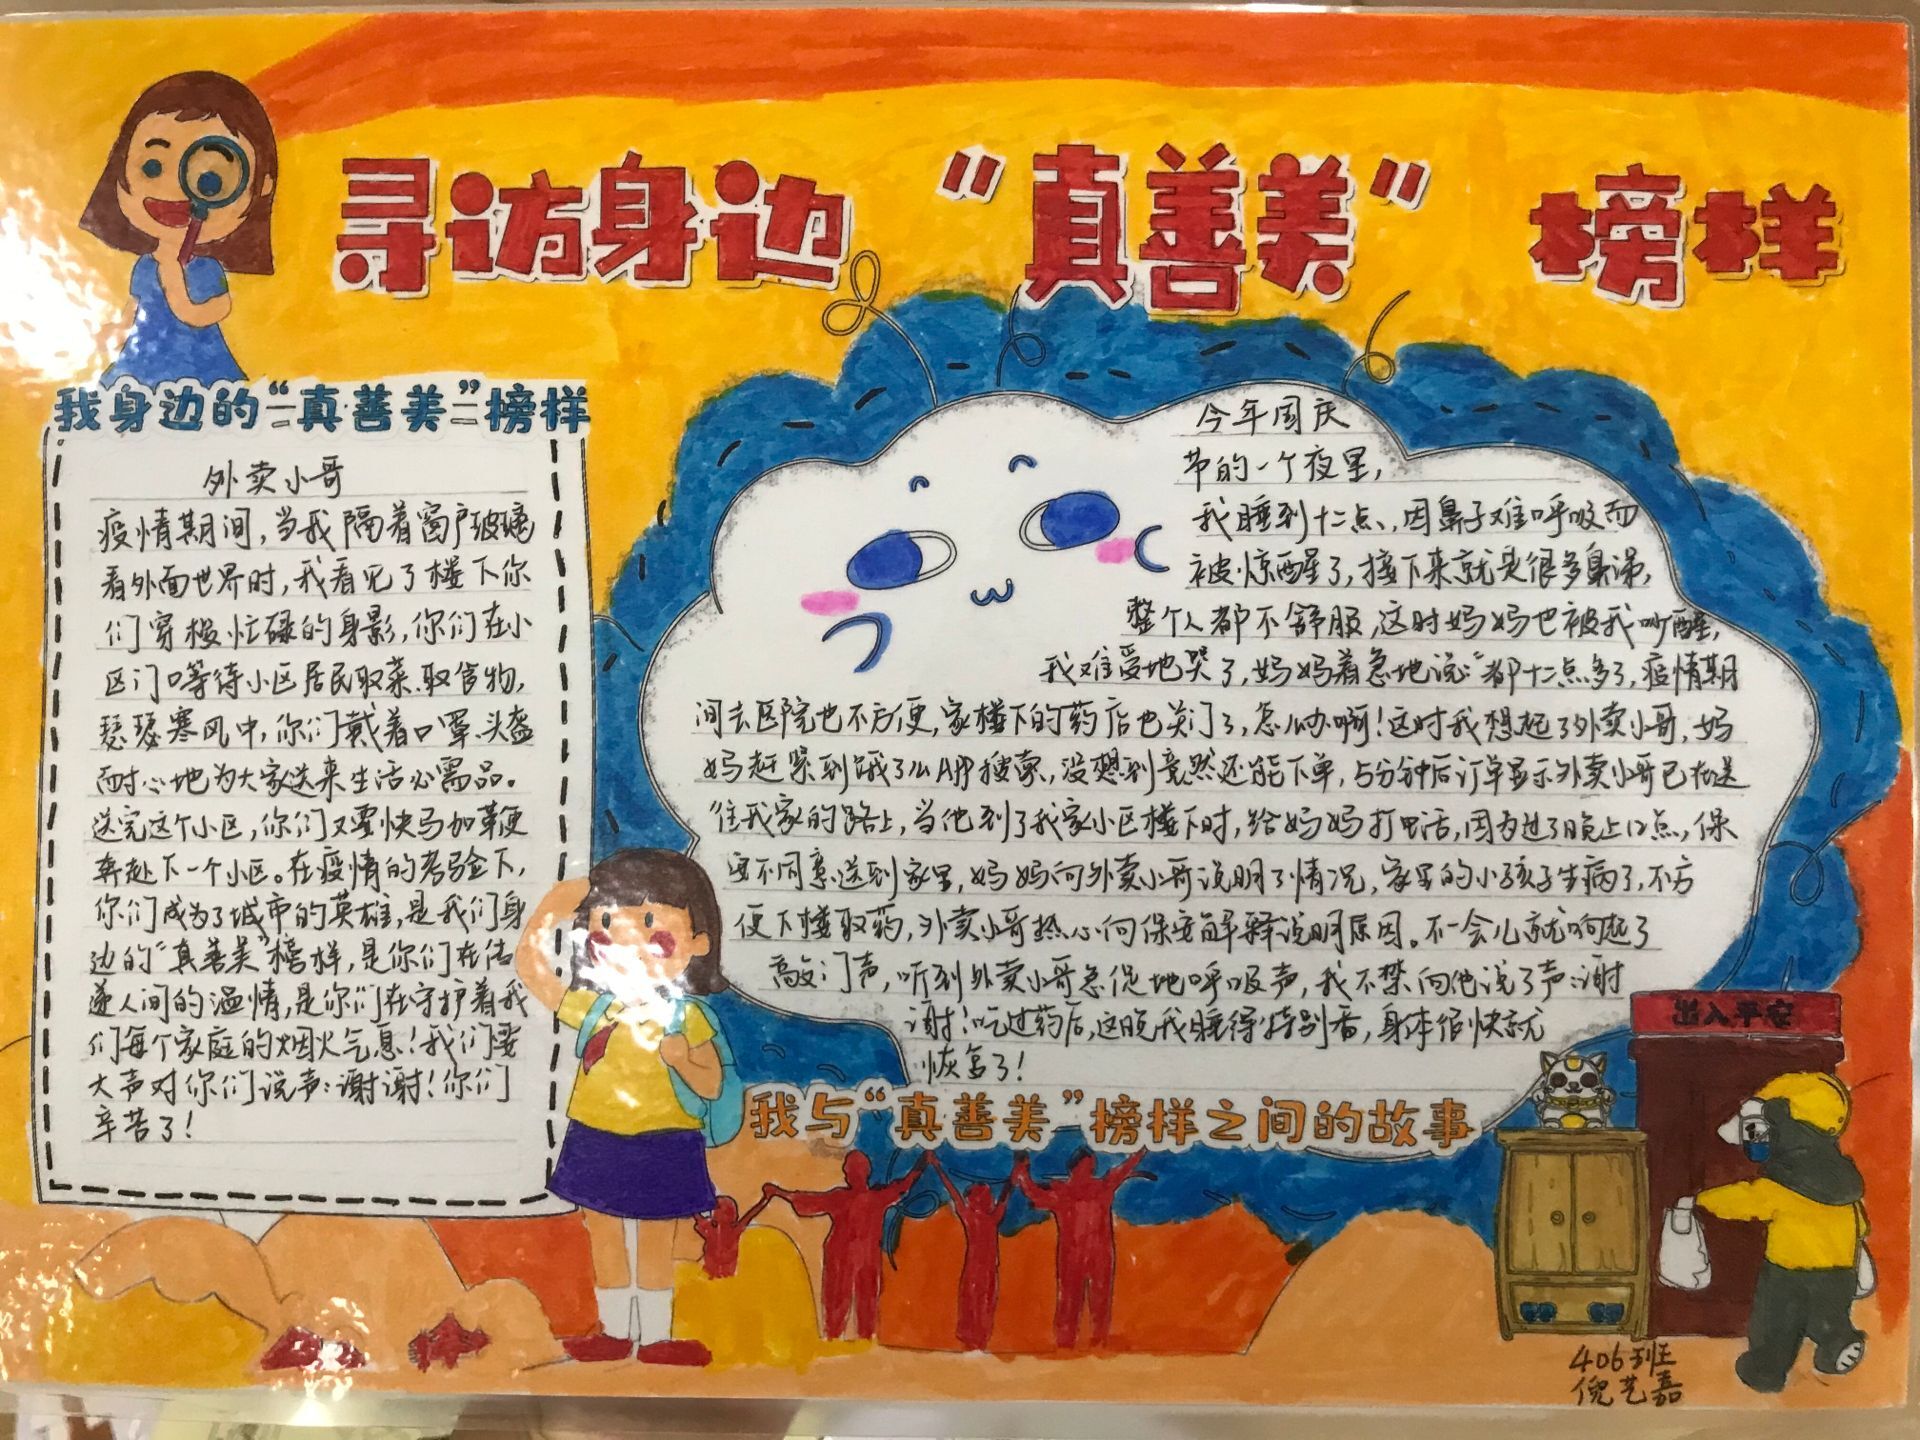 寻访身边“真善美”榜样
我身边的“真善美”榜样
外卖小哥
疫情期间,当我隔着窗户玻璃
看外面世界时,我看见了楼下你
们穿梭忙碌的身影,你们在小
区门口等待小区居民取菜.取食物,
瑟瑟寒风中,你们戴着口罩.头盔
耐心地为大家送来生活必需品。
送完这个小区,你们又要快马加鞭
奔赴下一个小区。在疫情的考验下,
你们成为了城市的英雄,是我们身
边的“真善美”榜样,是你们在传
递人间的温情,是你们在守护着我
们每个家庭的烟火气息!我们要
大声对你们说声:谢谢!你们
辛苦了!
今年国庆
节的一个夜里,
我睡到十二点,因鼻子难呼吸而
被惊醒了,接下来就是很多鼻涕,
整个人都不舒服,这时妈妈也被我吵醒,
我难受地哭了,妈妈着急地说:“都十二点多了,疫情期
间去医院也不方便,家楼下的药店也关门了,怎么办啊!这时我想起了外卖小哥,妈
妈赶紧到饿了么APP搜索,没想到竟然还能下单,5分钟后订单显示外卖小哥已在送
往我家的路上,当他到了我家小区楼下时,给妈妈打电话,因为过了晚上12点,保
安不同意送到家里,妈妈向外卖小哥说明了情况,家里的小孩子生病了,不方
便下楼取药,外卖小哥热心向保安解释说明原因。不一会儿就响起了
敲门声,听到外卖小哥急促地呼吸声,我不禁向他说了声:谢
谢!吃过药后,这晚我睡得特别香,身体很快就
恢复了!
我与“真善美”榜样之间的故事
出入平安
406班
倪艺嘉